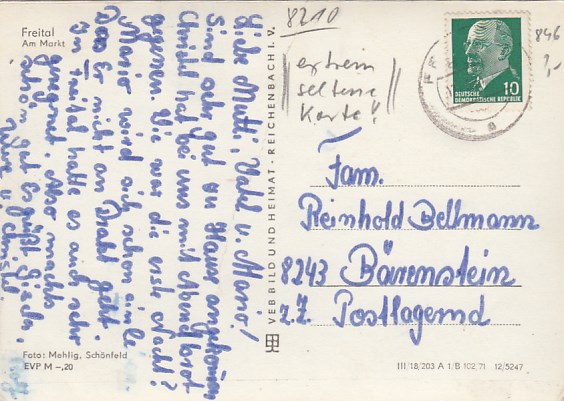 Freital
Am Markt
Liebe Mutti, Vati u. Mario!
Sind sehr gut zu Haus angekommen.
Christel hat bei uns mit Abendbrot
gegessen. Wie war die erste Nacht?
Mario wird sich schon einle
ben. Er nicht an
In Freital hatte es auch sehr
geregnet. Also macht's
schön gut. Es grüßt Gisela,
u. Christel.
Foto: Mehlig, Schönfeld
EVP M –,20
VEB BILD UND HEIMAT · REICHENBACH I. V.
8210
extrem
seltene
Karte!!
846
DEUTSCHE
DEMOKRATISCHE REPUBLIK
10
Fam.
Reinhold Bellmann
8243 Bärenstein
z.Z. Postlagernd
III/18/203 A 1/B 102 71 12/5247